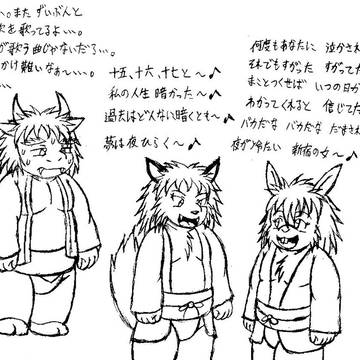 …。また ずいぶんと
を歌ってるよ…。
が歌う曲じゃないだろ…。
かけ難いなぁ〜…。
…
十五、十六、十七と〜♪
私の人生 暗かった〜♪
過去はどんなに暗くとも〜♪
夢は夜ひらく〜♪
何度もあなたに 泣かされ
それでもすがった すがった
まことつくせば いつの日か
わかってくれると 信じて
バカだな バカだな だまされ
夜が冷たい 新宿の女〜♪